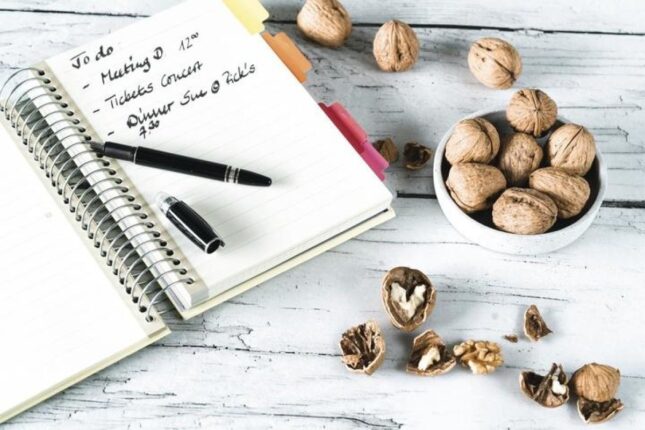 To Do
- Meeting D 12⁰⁰
- Tickets Concert
- Dinner Sue @ Zick's
7³⁰